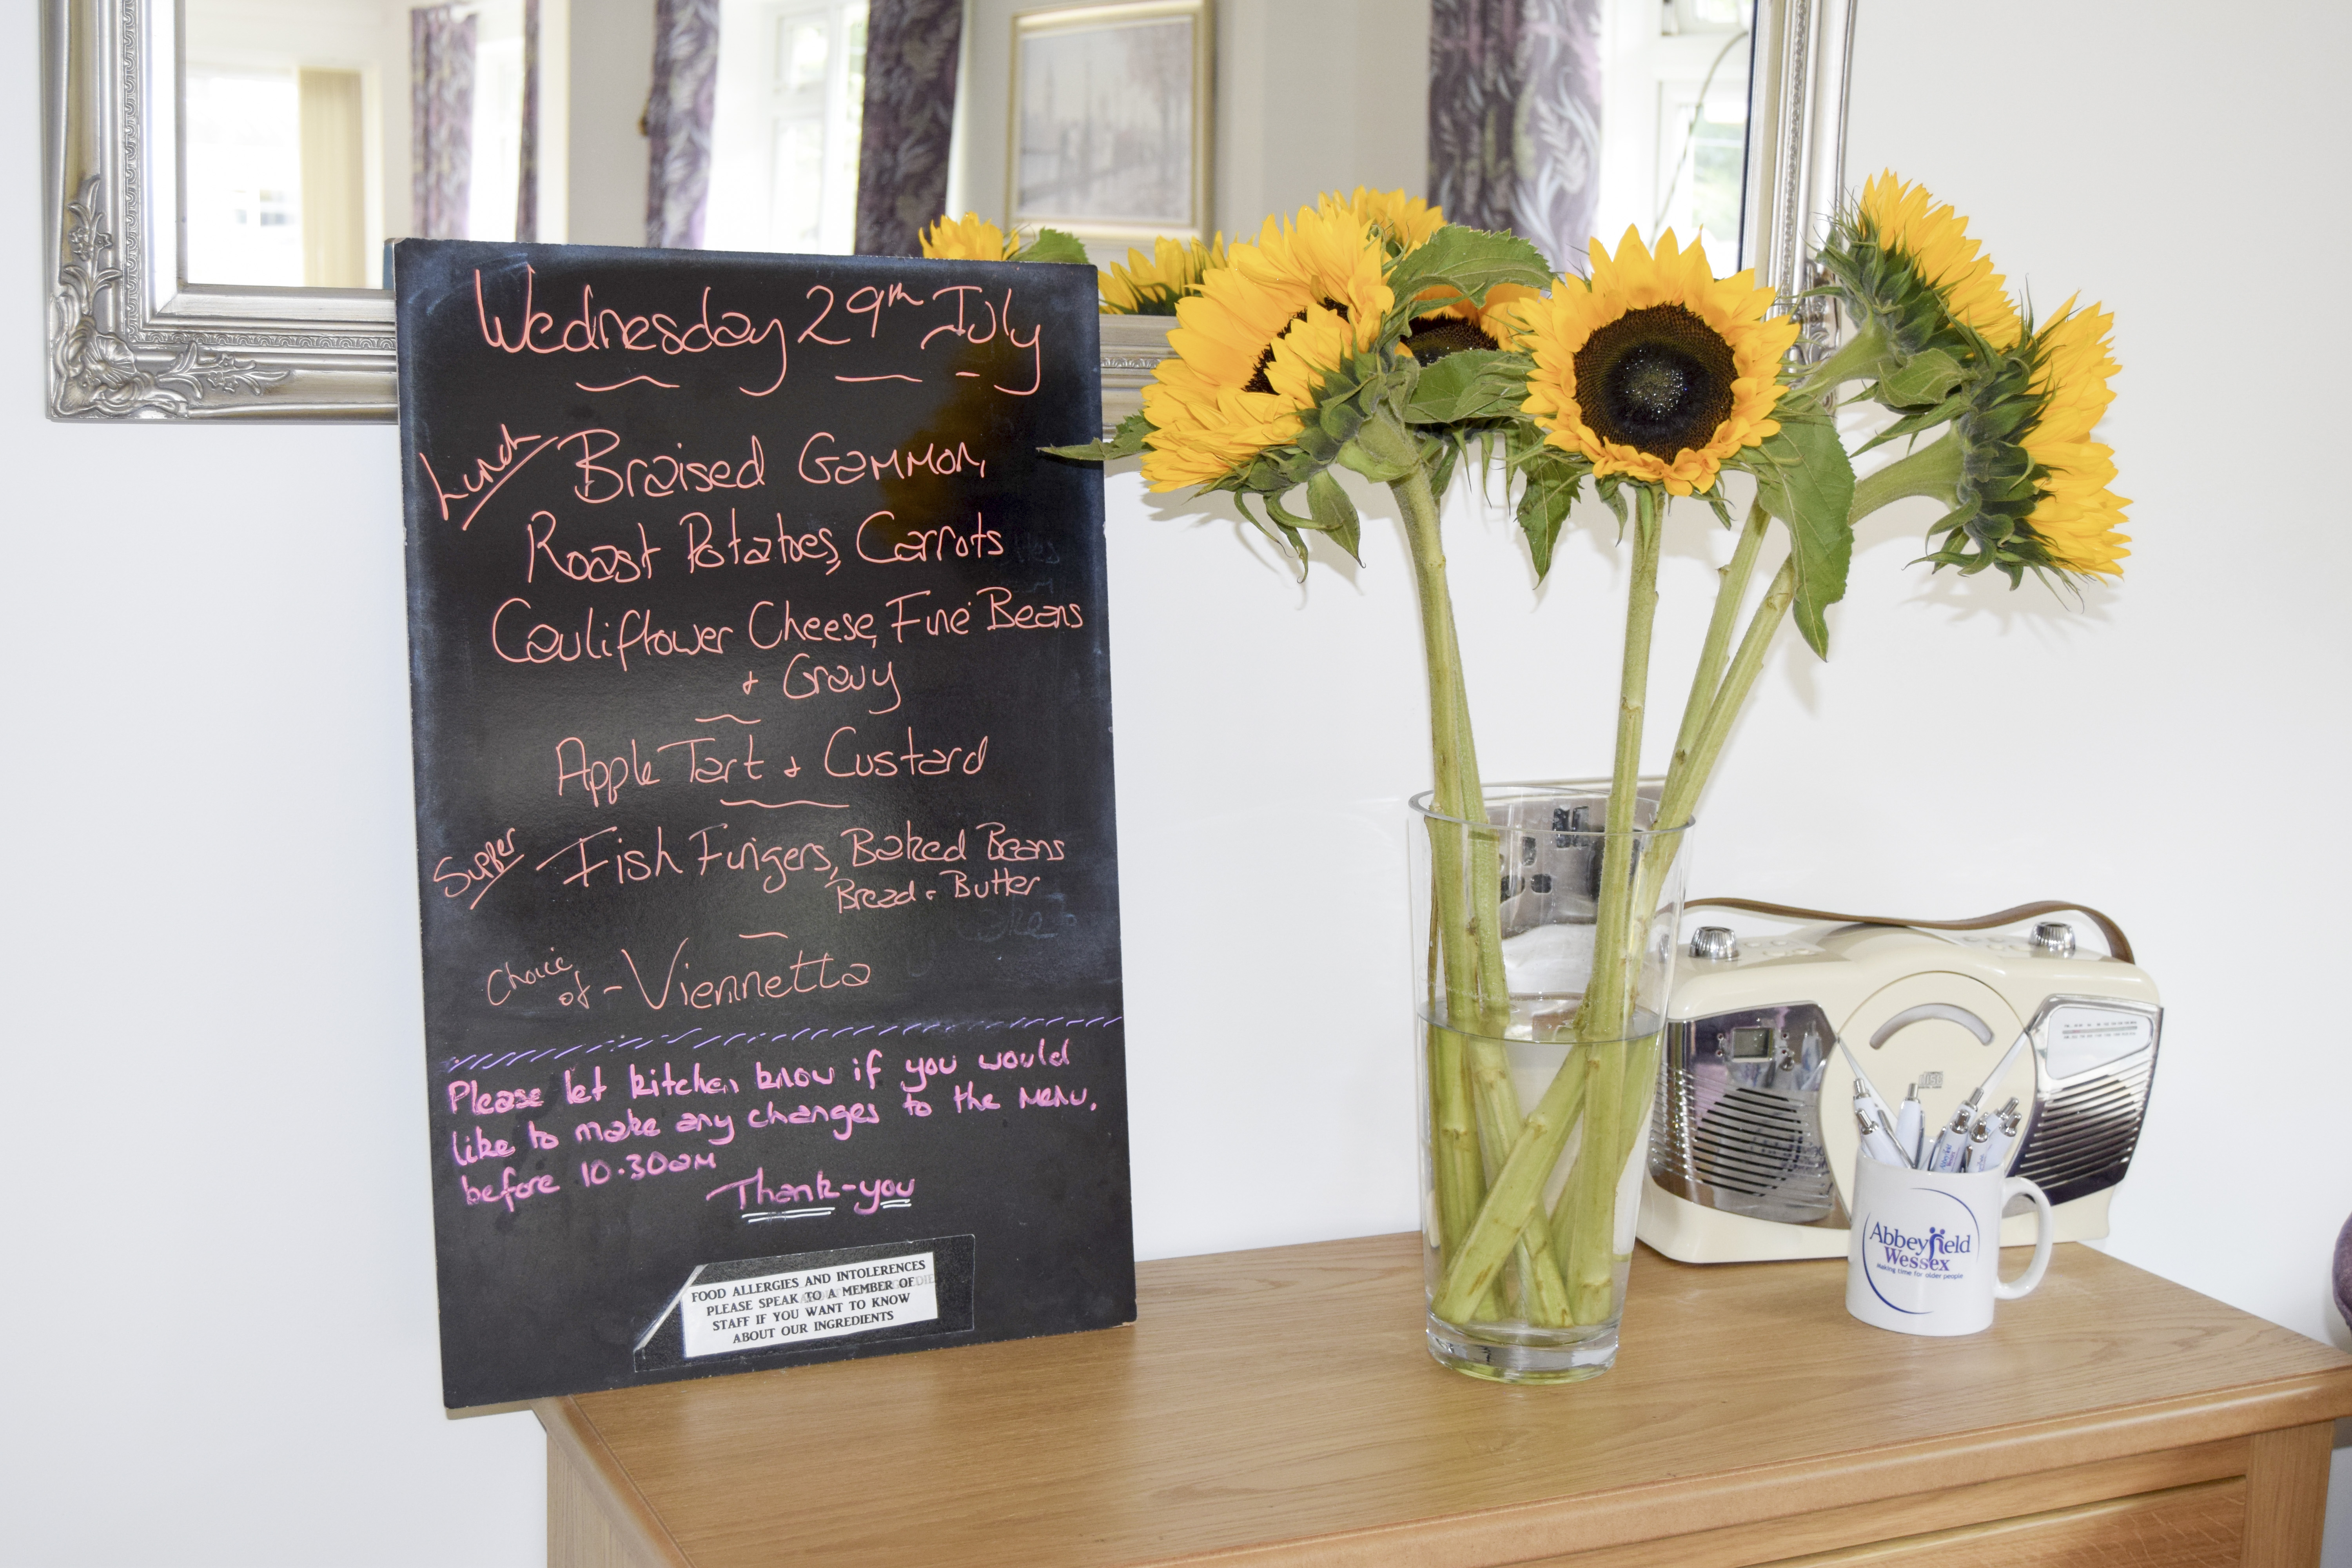 Wednesday 29th July
Lunch
Braised Gammon,
Roast Potatoes, Carrots
Cauliflower Cheese, Fine Beans
+ Gravy
Apple Tart + Custard
Supper
Fish Fingers, Baked Beans
Bread + Butter
Choice
of - Viennetta
Please let kitchen know if you would
like to make any changes to the menu.
before 10.30am
Thank-you
FOOD ALLERGIES AND INTOLERENCES
PLEASE SPEAK TO A MEMBER OF
STAFF IF YOU WANT TO KNOW
ABOUT OUR INGREDIENTS
Abbeyfield
Wessex
Making time for older people